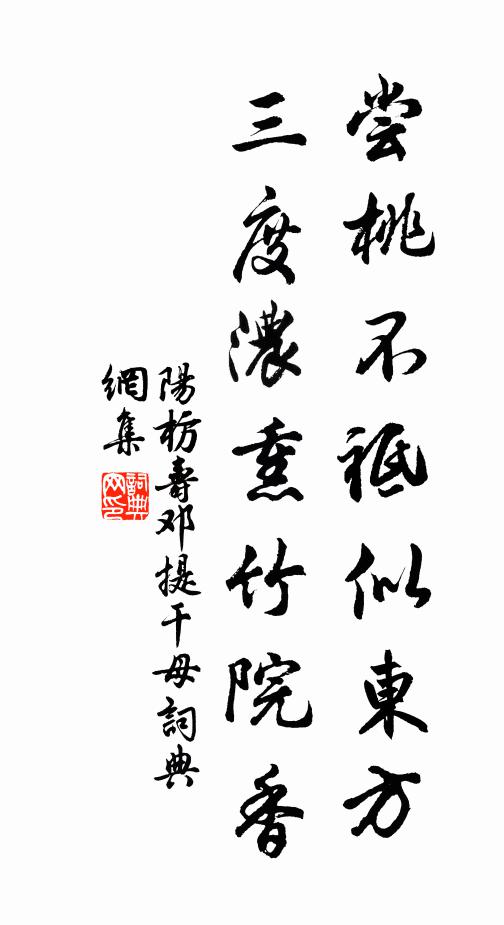 尝桃不祗似東方
三度濃熏竹院香
陽枋壽邓提干母詞典
網集
詞典
网印